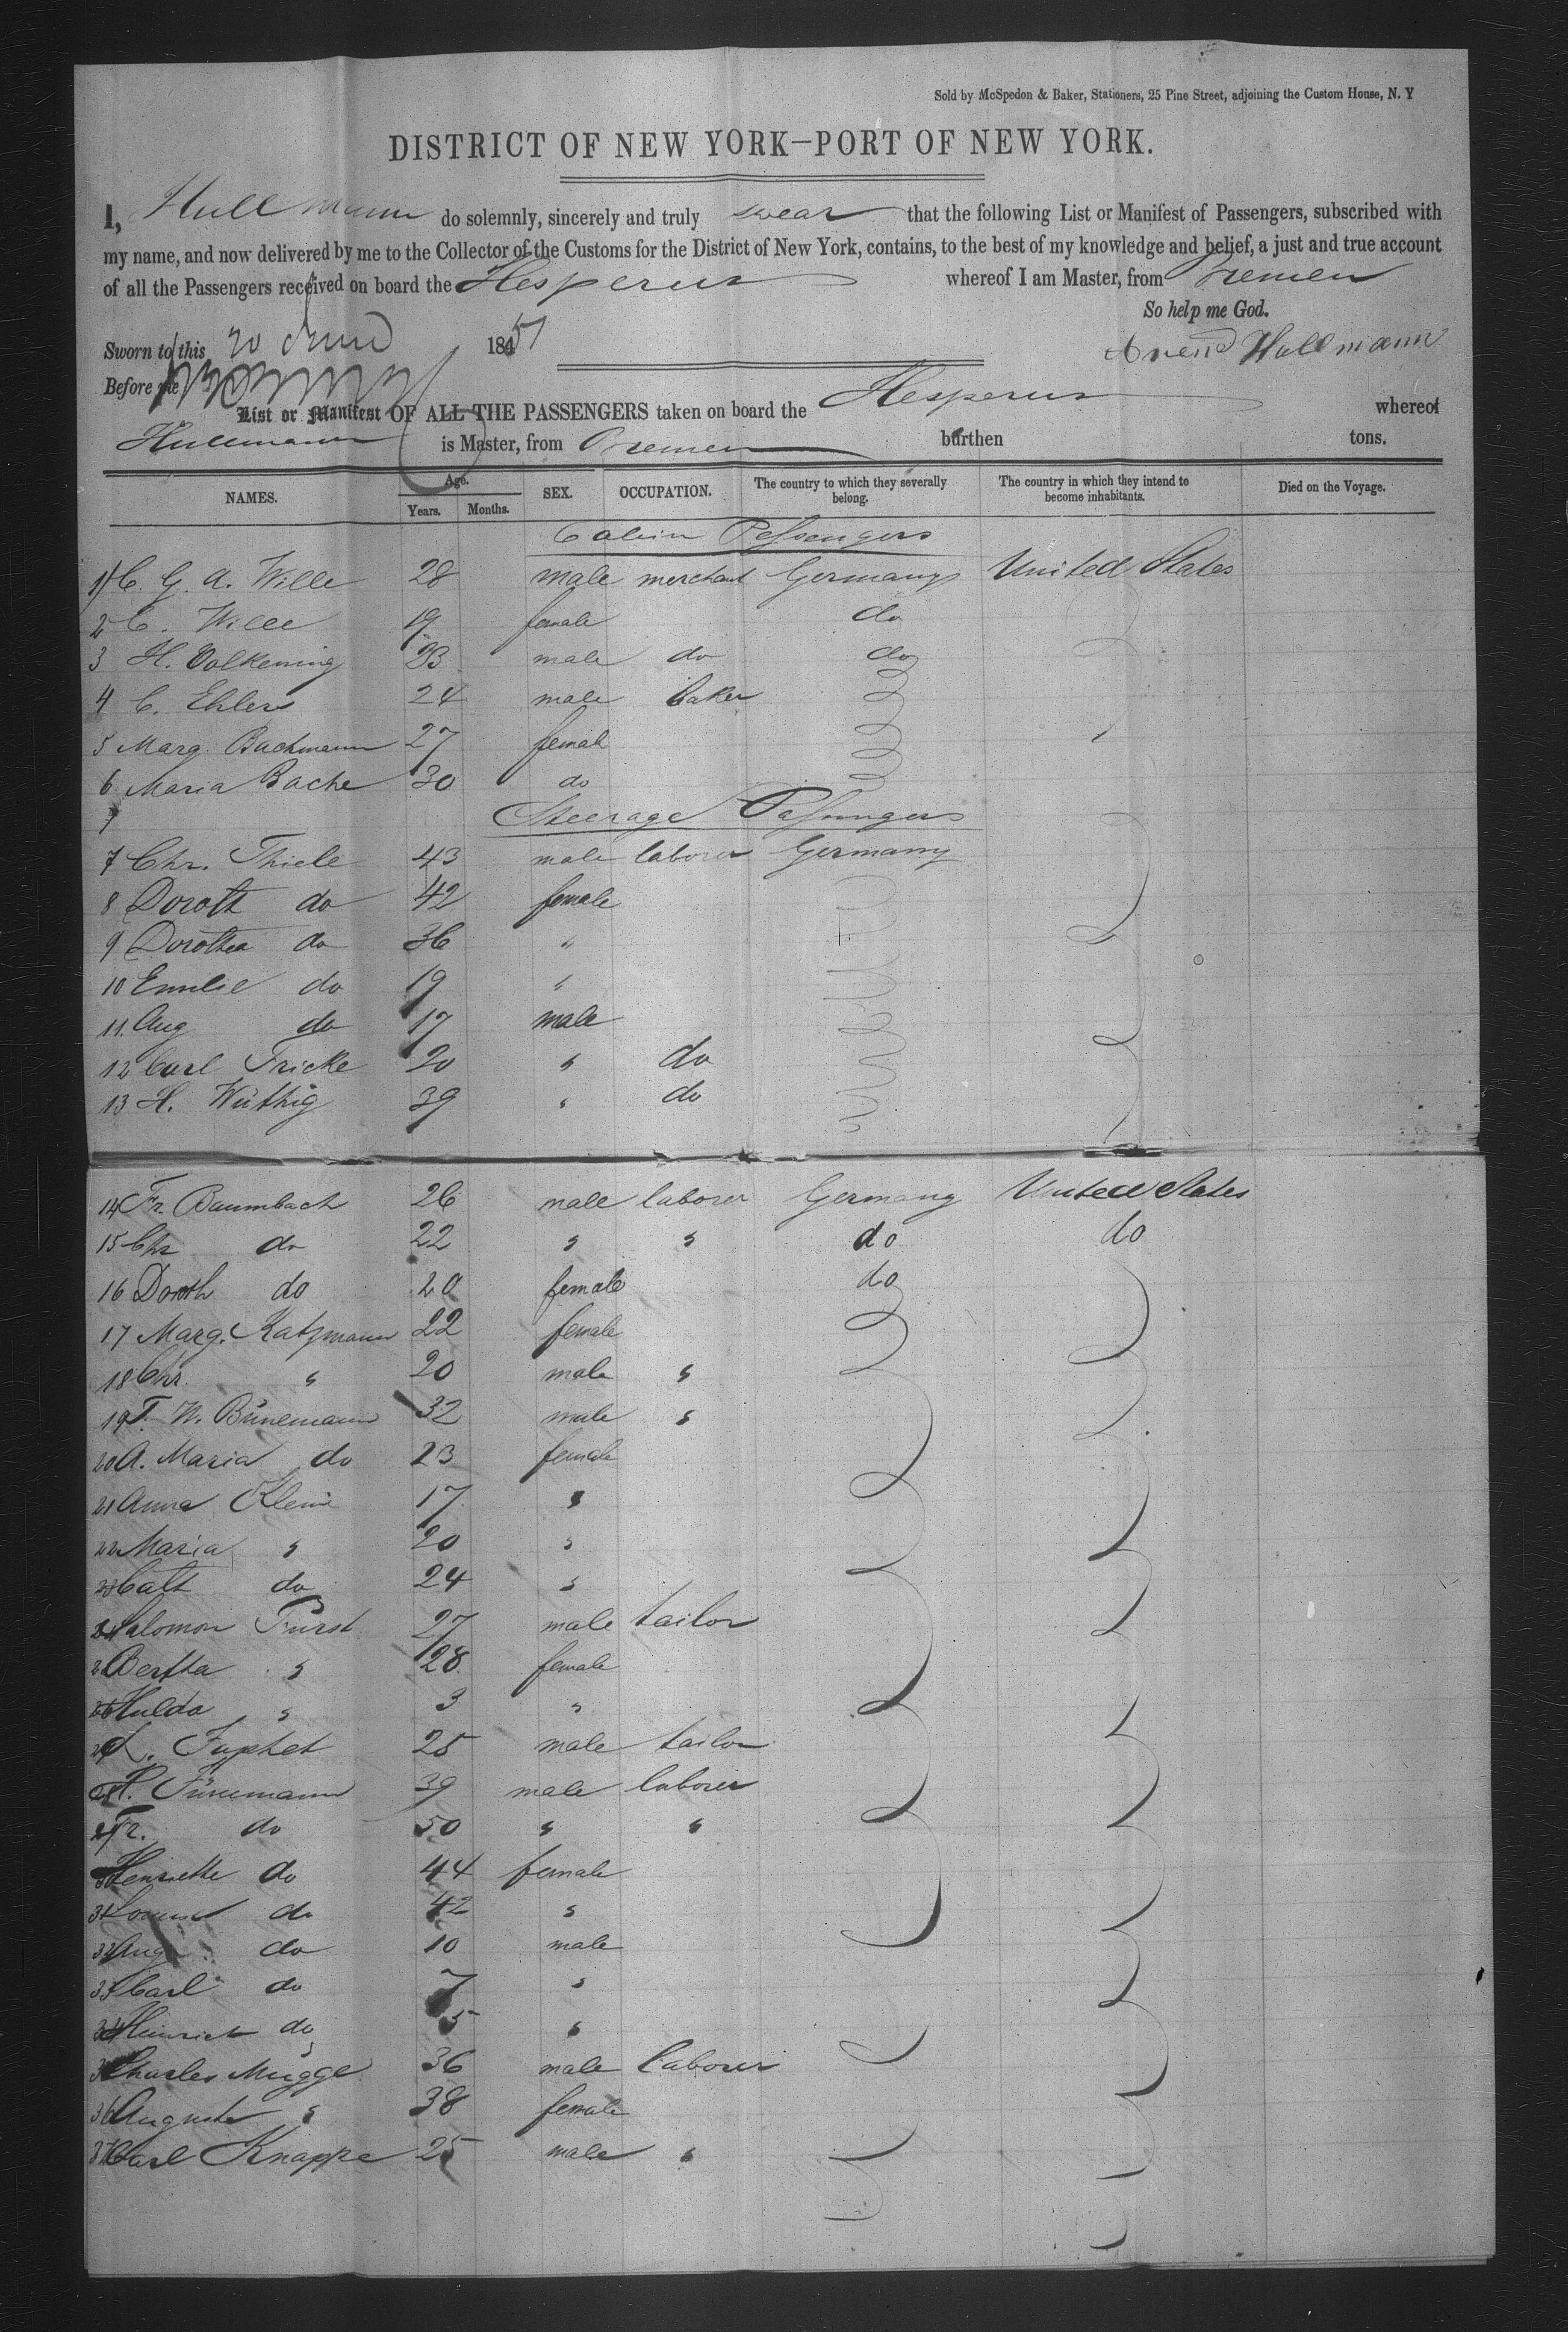 Sold by McSpedon & Baker, Stationers, 25 Pine Street, adjoining the Custom House, N. Y
DISTRICT OF NEW YORK—PORT OF NEW YORK.
I, Hullmann do solemnly, sincerely and truly swear that the following List or Manifest of Passengers, subscribed with
my name, and now delivered by me to the Collector of the Customs for the District of New York, contains, to the best of my knowledge and belief, a just and true account
of all the Passengers received on board the Hesperus whereof I am Master, from Bremen
So help me God.
Sworn to this 20 June 1851 Arend Hullmann
Before me
List or Manifest OF ALL THE PASSENGERS taken on board the Hesperus whereof
Hullmann is Master, from Bremen burthen tons.
NAMES. Age. Years. Months. SEX. OCCUPATION. The country to which they severally belong. The country in which they intend to become inhabitants. Died on the Voyage.
Cabin Passengers
1 C. G. A. Wille 28 male merchant Germany United States
2 C. Wille 19 female do
3 H. Volkening 23 male do do
4 C. Ehlers 24 male baker
5 Marg. Bachmann 27 femal
6 Maria Bache 30 do
7 Steerage Passengers
7 Chr. Thiele 43 male laborer Germany
8 Doroth do 42 female
9 Dorothea do 36 "
10 Emilie do 19 "
11. Aug do 17 male
12 Carl Fricke 20 " do
13 H. Wüthig 39 " do
14 Fr. Baumbach 26 male laborer Germany United States
15 Chr do 22 " " do do
16 Doroth do 20 female do
17 Marg. Katzmann 22 female
18 Chr. " 20 male "
19 F. W. Bünemann 32 male "
20 A. Maria do 23 female
21 Anna Kleine 17 "
22 Maria " 20 "
23 Cath do 24 "
24 Salomon Fürst 27 male tailor
2 Bertha " 28 female
26 Hulda " 3 "
27 L. Japhet 25 male tailor
28 H. Fünemann 39 male laborer
29 Fr. do 50 " "
Henriette do 44 female
31 Louise do 42 "
32 Aug do 10 male
33 Carl do 7 "
34 Heinrich do 5 "
35 Charles Mügge 36 male laborer
36 Auguste " 38 female
37 Carl Knappe 25 male "